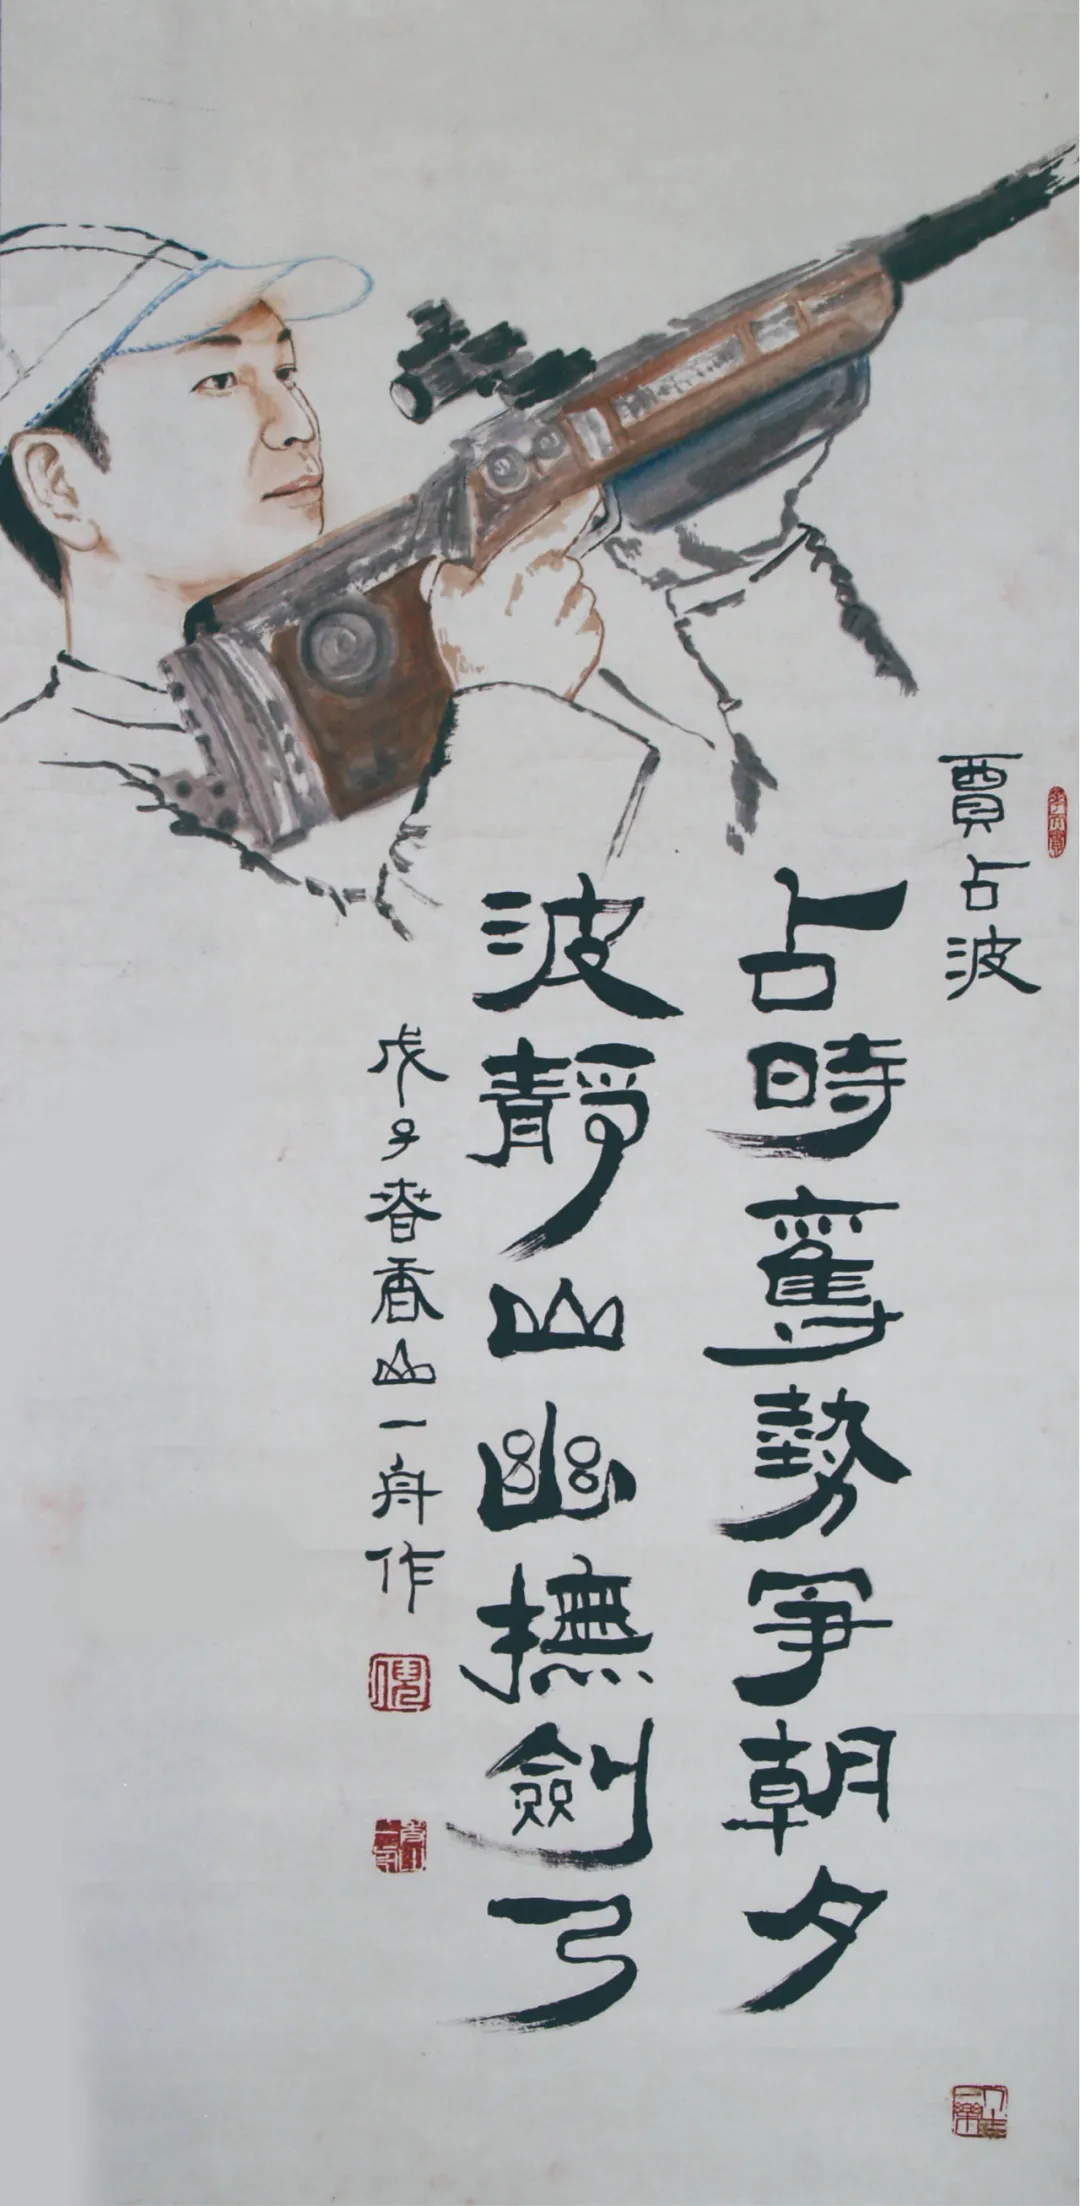 賈占波
占時奪勢爭朝夕
波靜山幽撫劍弓
戊子春香山一舟作